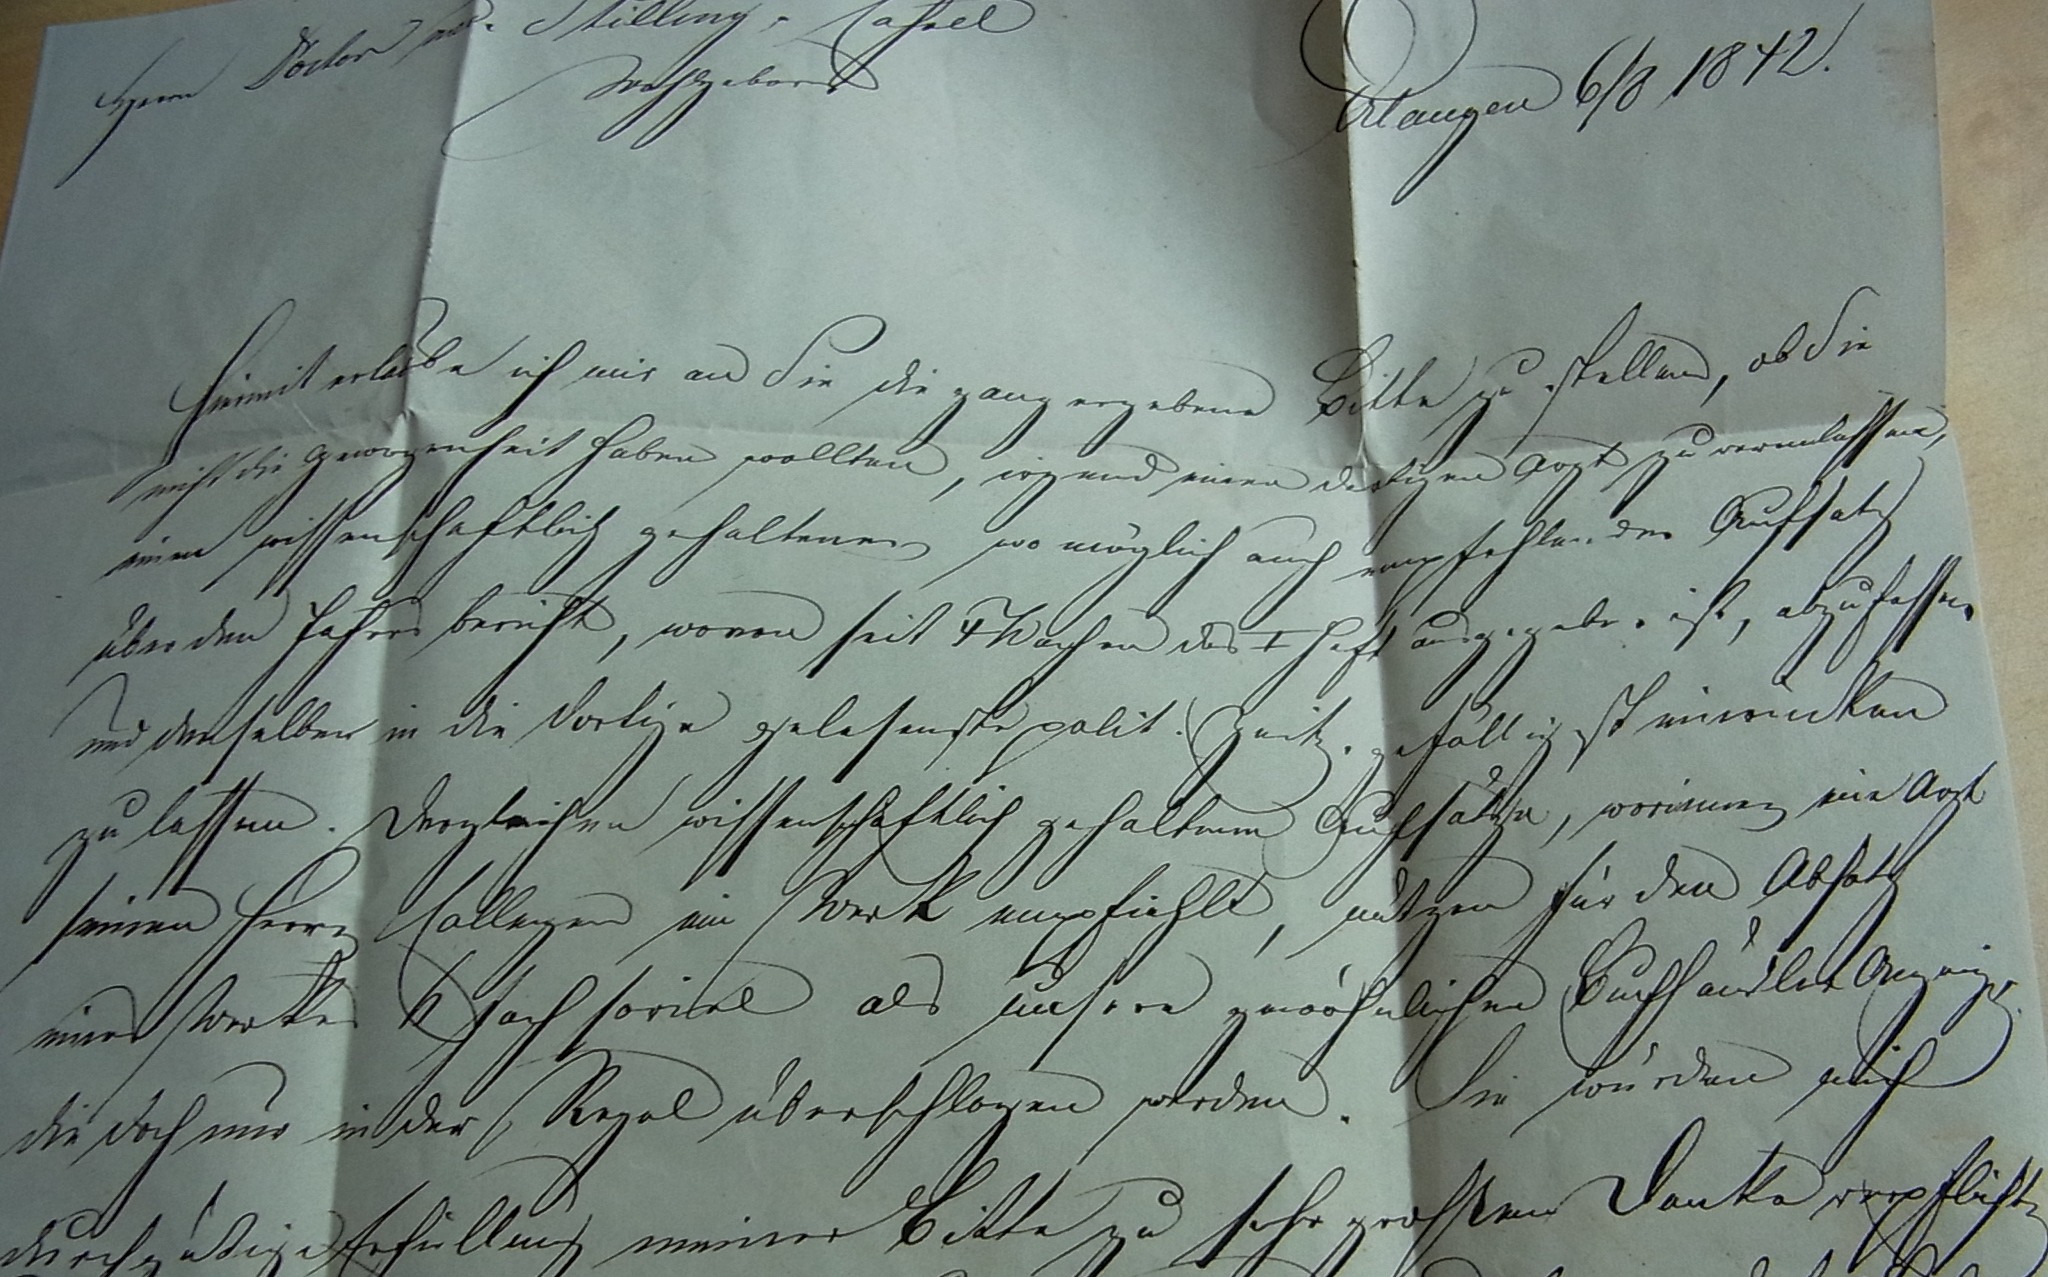 Herrn Doctor med. Stilling, Cassel
Wohlgeboren
Erlangen 6/8 1842.
Hiermit erlaube ich mir an Sie die ganz ergebene Bitte zu stellen, ob Sie
nicht die Gewogenheit haben wollten, irgend einen dortigen Arzt zu veranlassen,
einen wissenschaftlich gehaltenen wo möglich auch empfehlenden Aufsatz
über den Jahresbericht, wovon seit 4 Wochen das I Heft ausgegeben ist, abzufassen
und denselben in die dortige gelesenste polit. Zeitg. gefälligst einrücken
zu lassen. Dergleichen wissenschaftlich gehaltene Aufsätze, worinnen ein Arzt
seinen Herrn Collegen ein Werk empfiehlt, nützen für den Absatz
eines Werkes fach soviel als unsere gewöhnlichen Buchhändler Anzeigen
die doch nur in der Regel überschlagen werden. Sie würden mich
durch gütige Erfüllung meiner Bitte zu sehr großem Danke verpflichten